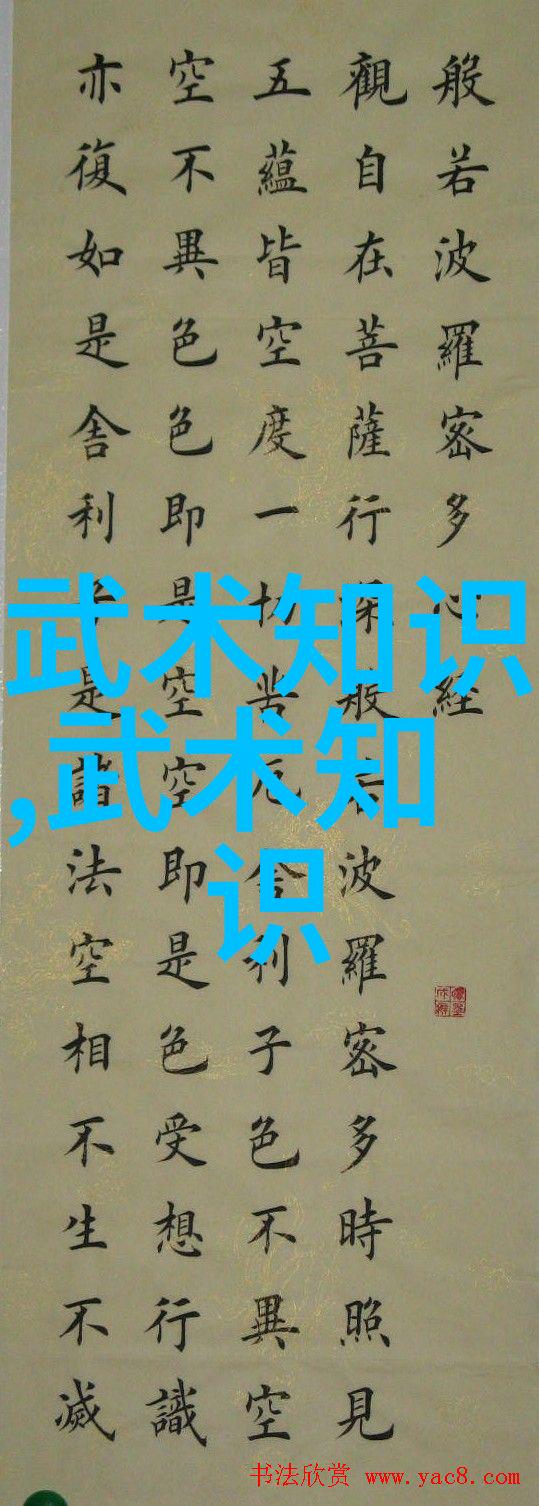 般若波羅密多心經
觀自在菩薩行深般若波羅密多時照見
五蘊皆空度一切苦厄舍利子色不異空
空不異色色即是空空即是色受想行識
亦復如是舍利子是諸法空相不生不滅
武术知识
,武术知
识
书法欣赏 www.yac8.com